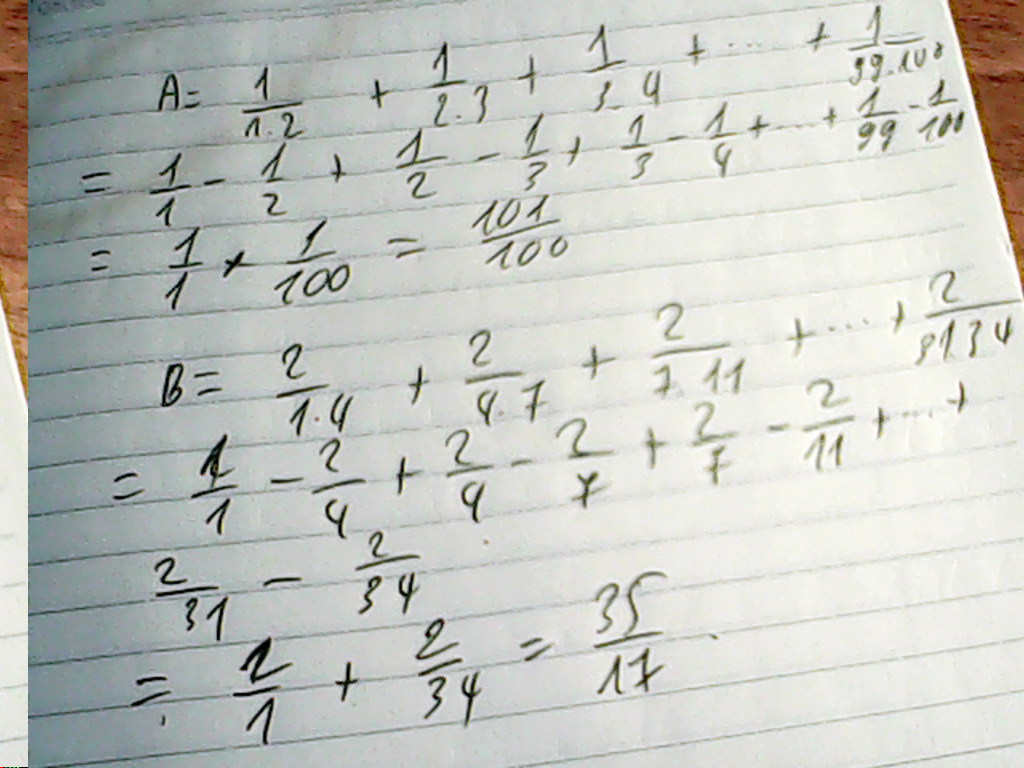 A= 1/1.2 + 1/2.3 + 1/3.4 + .... + 1/99.100
= 1/1 - 1/2 + 1/2 - 1/3 + 1/3 - 1/4 + ... + 1/99 - 1/100
= 1/1 + 1/100 = 101/100
B= 2/1.4 + 2/4.7 + 2/7.11 + ... + 2/31.34
= 2/1 - 2/4 + 2/4 - 2/7 + 2/7 - 2/11 + ... +
2/31 - 2/34
= 2/1 + 2/34 = 35/17